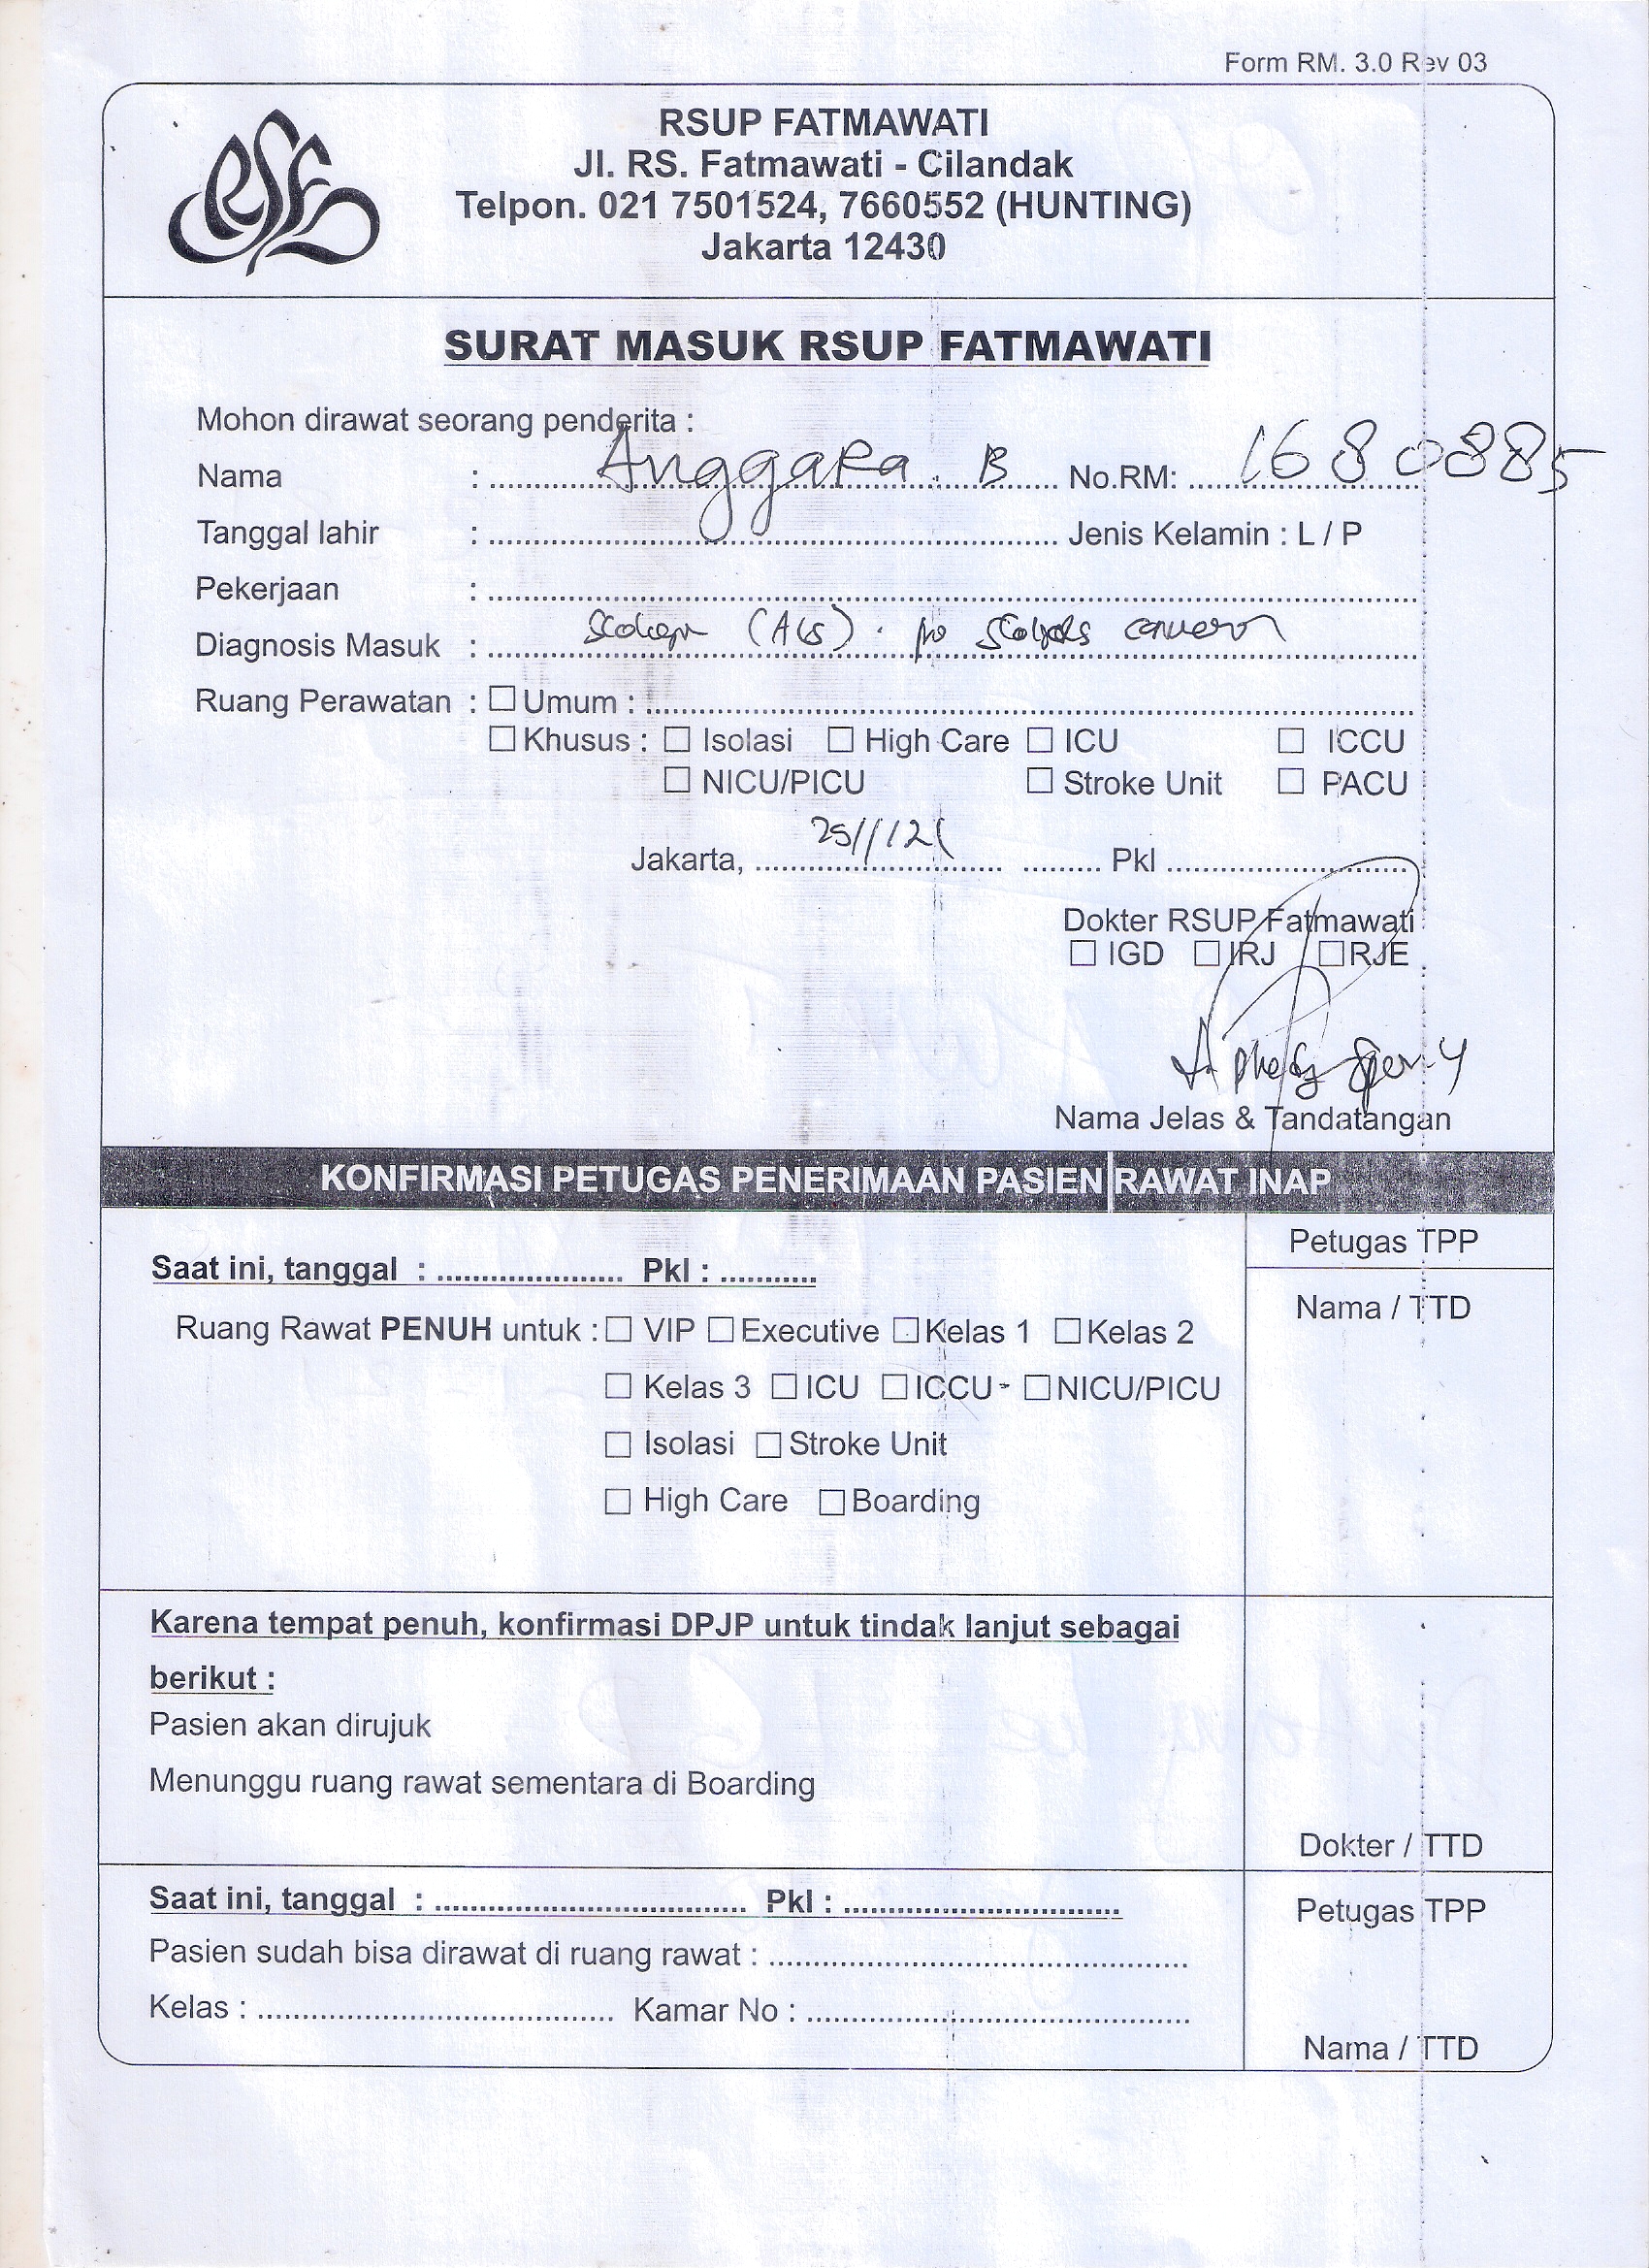 Form RM. 3.0 Rev 03
RSF
RSUP FATMAWATI
Jl. RS. Fatmawati - Cilandak
Telpon. 021 7501524, 7660552 (HUNTING)
Jakarta 12430
SURAT MASUK RSUP FATMAWATI
Mohon dirawat seorang penderita :
Nama : Anggara. B No.RM: 1680885
Tanggal lahir : Jenis Kelamin : L / P
Pekerjaan :
Diagnosis Masuk :
Ruang Perawatan : ☐ Umum :
☐ Khusus : ☐ Isolasi ☐ High Care ☐ ICU ☐ ICCU
☐ NICU/PICU ☐ Stroke Unit ☐ PACU
Jakarta, Pkl
Dokter RSUP Fatmawati
☐ IGD ☐ IRJ ☐ RJE
Nama Jelas & Tandatangan
KONFIRMASI PETUGAS PENERIMAAN PASIEN RAWAT INAP
Petugas TPP
Saat ini, tanggal : Pkl :
Nama / TTD
Ruang Rawat PENUH untuk : ☐ VIP ☐ Executive ☐ Kelas 1 ☐ Kelas 2
☐ Kelas 3 ☐ ICU ☐ ICCU ☐ NICU/PICU
☐ Isolasi ☐ Stroke Unit
☐ High Care ☐ Boarding
Karena tempat penuh, konfirmasi DPJP untuk tindak lanjut sebagai
berikut :
Pasien akan dirujuk
Menunggu ruang rawat sementara di Boarding
Dokter / TTD
Saat ini, tanggal : Pkl :
Petugas TPP
Pasien sudah bisa dirawat di ruang rawat :
Kelas : Kamar No :
Nama / TTD